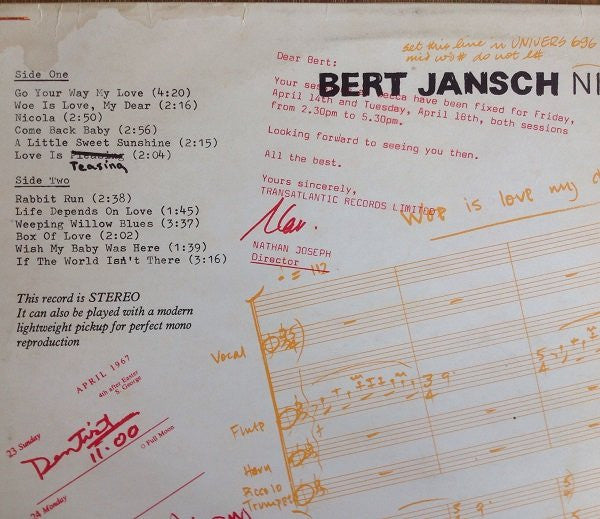 set this line in UNIVERS 696
BERT JANSCH NI
Side One
Go Your Way My Love (4:20)
Woe Is Love, My Dear (2:16)
Nicola (2:50)
Come Back Baby (2:56)
A Little Sweet Sunshine (2:15)
Love Is Pleasing (2:04)
Teasing
Side Two
Rabbit Run (2:38)
Life Depends On Love (1:45)
Weeping Willow Blues (3:37)
Box Of Love (2:02)
Wish My Baby Was Here (1:39)
If The World Isn't There (3:16)
This record is STEREO
It can also be played with a modern
lightweight pickup for perfect mono
reproduction
Dear Bert:
Your ses ecca have been fixed for Friday,
April 14th and Tuesday, April 18th, both sessions
from 2.30pm to 5.30pm.
Looking forward to seeing you then.
All the best.
Yours sincerely,
TRANSATLANTIC RECORDS LIMITED
NATHAN JOSEPH
Director
Woe is love my d
= 112
Vocal
3
4
5
4
3
4
5
4
Flute
Horn
Piccolo
Trumpet
APRIL 1967
4th after Easter
S. George
23 Sunday
O Full Moon
Dentist
11.00
24 Monday